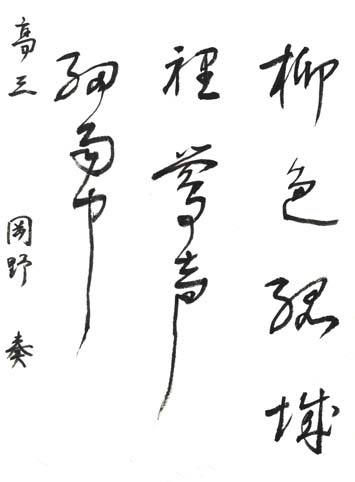 柳色孤城
裡鶯声
細雨中
高三 岡野 奏